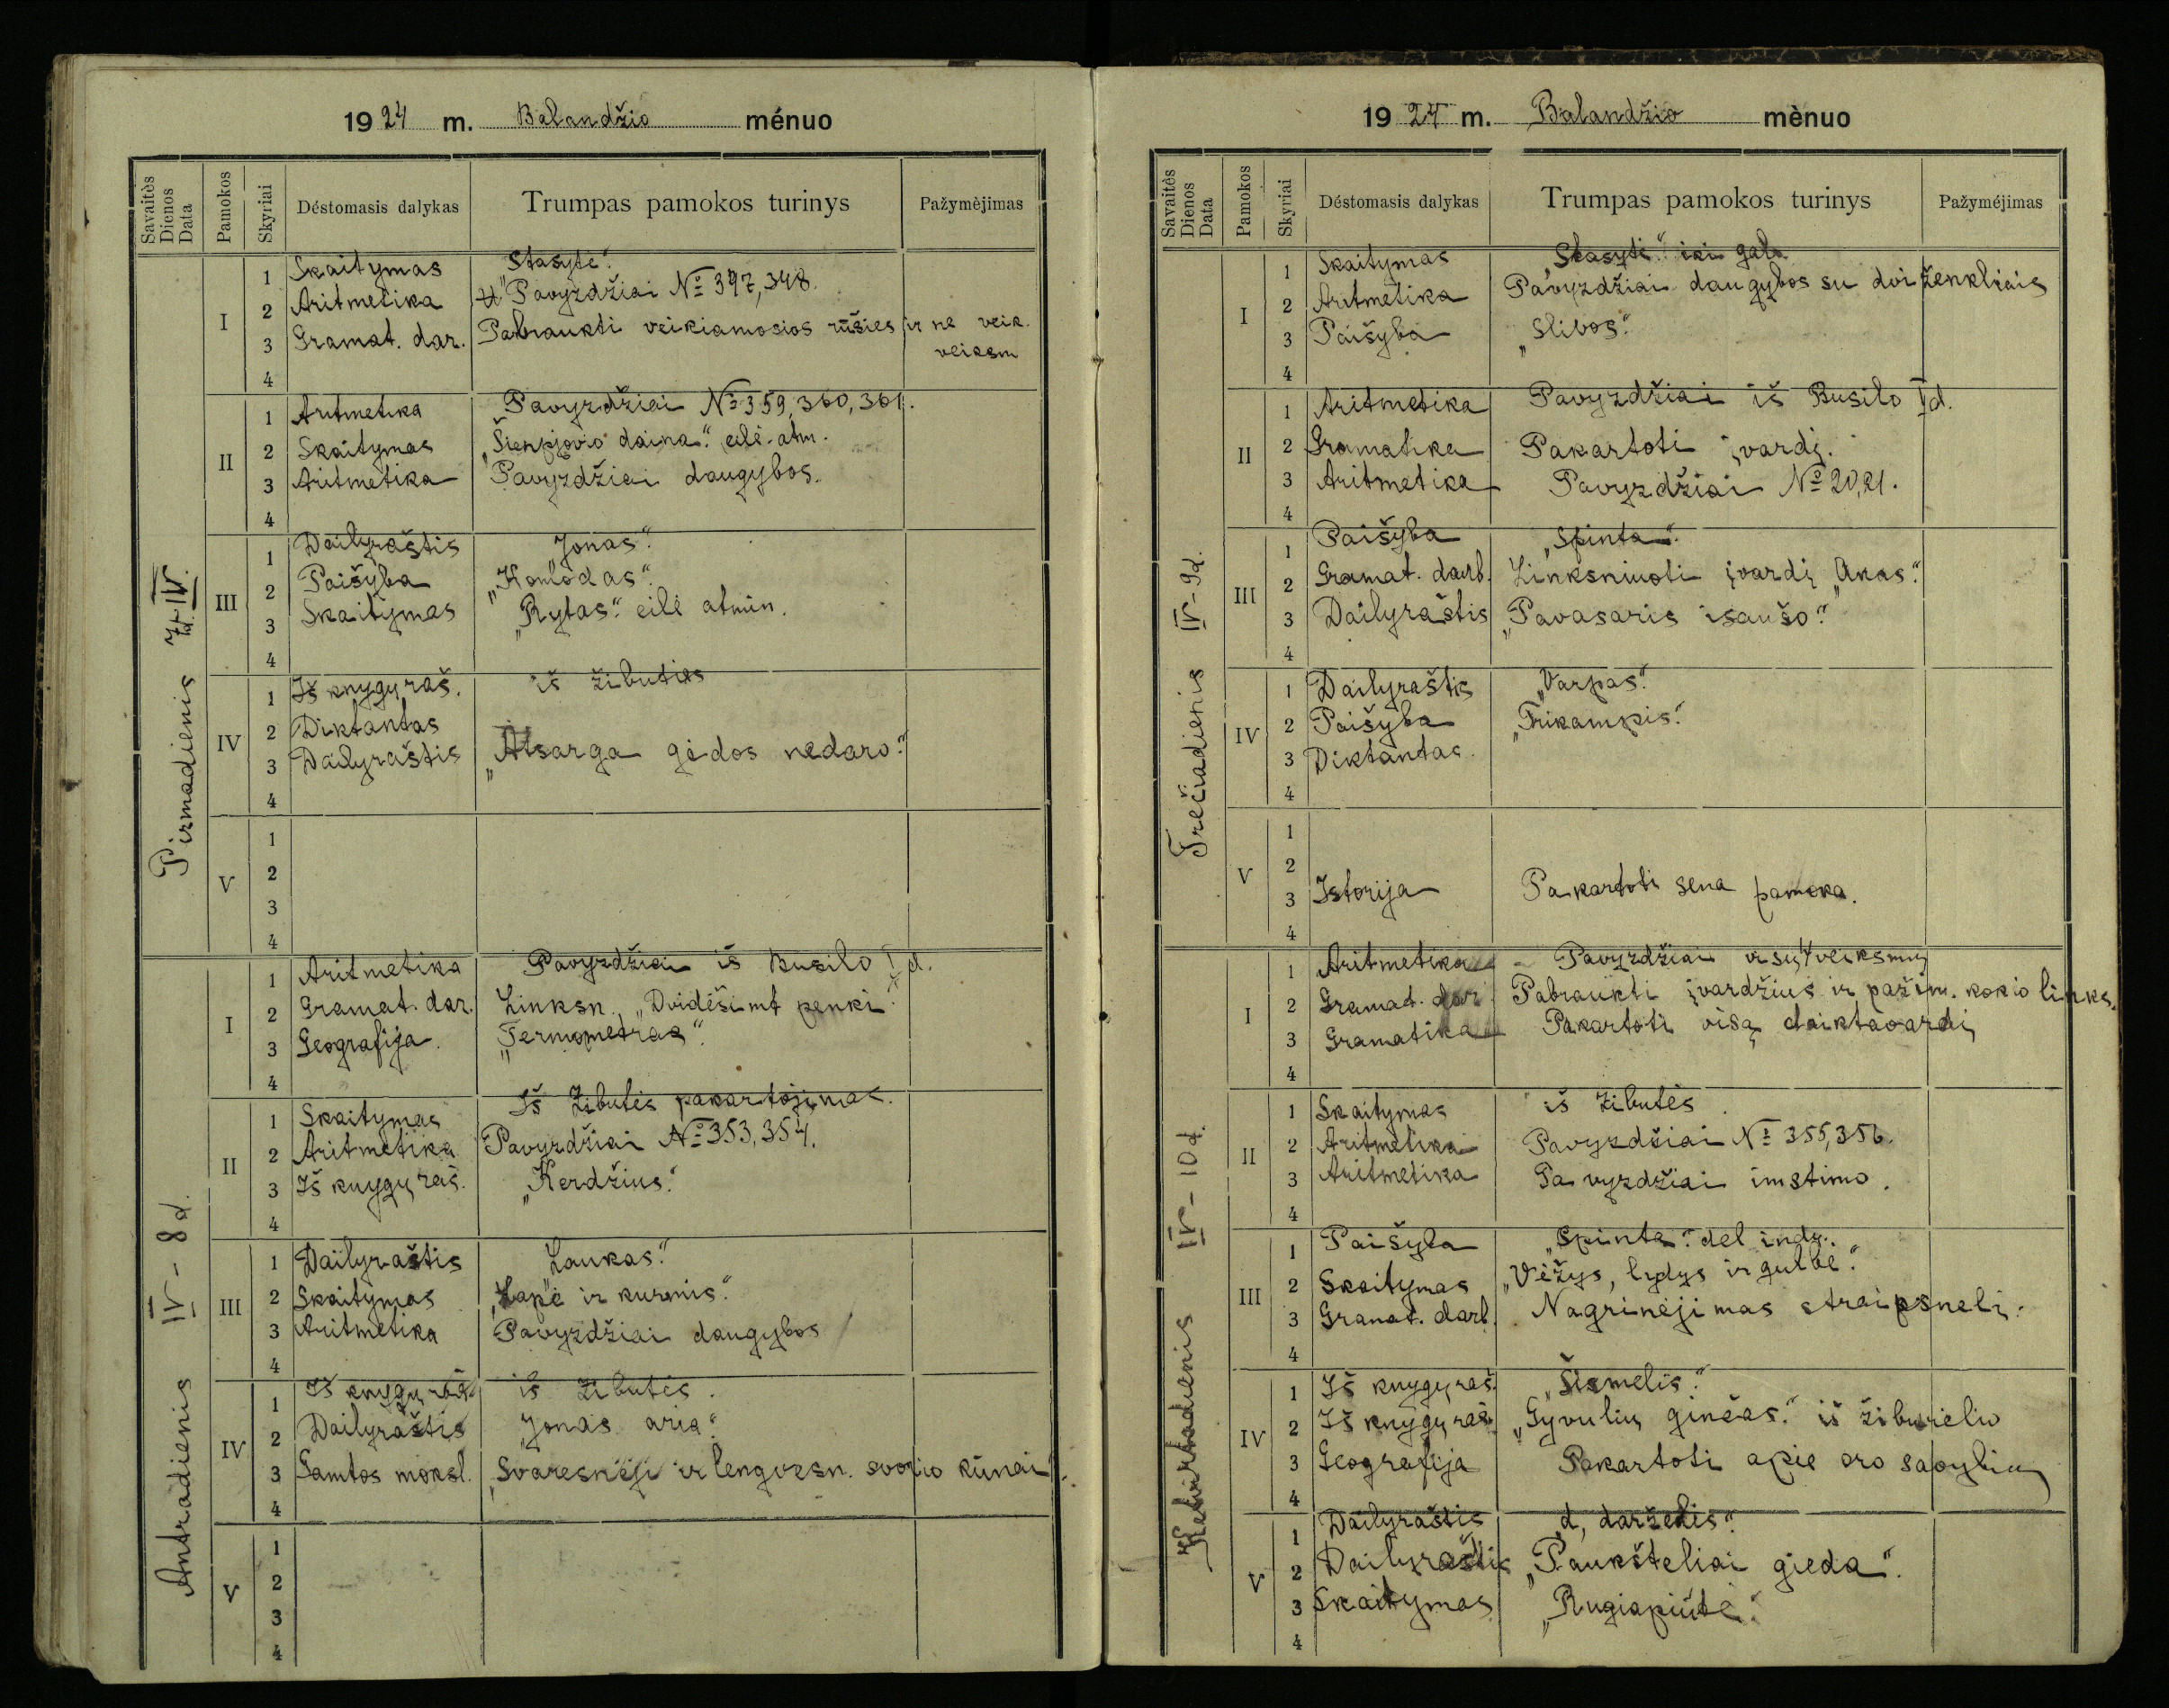 1924 m. Balandžio ménuo
Savaitės Dienos Data Pamokos Skyriai Dėstomasis dalykas Trumpas pamokos turinys Pažymėjimas
Pirmadienis 7d. IV.
I
1 Skaitymas „Stasytė“.
2 Aritmetika Pavyzdžiai № 397, 348.
3 Gramat. dar. Pabraukti veikiamosios rūšies ir ne veik.
veiksm
4
II
1 Aritmetika Pavyzdžiai № 359, 360, 361.
2 Skaitymas „Šienpjovio daina“. eilė. atm.
3 Aritmetika Pavyzdžiai daugybos.
4
III
1 Dailyraštis „Jonas“.
2 Paišyba „Komodas“.
3 Skaitymas „Rytas“. eilė atmin.
4
IV
1 Iš knygų raš. iš žibutės
2 Diktantas
3 Dailyraštis „Atsarga gėdos nedaro“.
4
V
1
2
3
4
Antradienis IV - 8 d.
I
1 Aritmetika Pavyzdžiai iš Busilo I d.
2 Gramat. dar. Linksn. „Dvidešimt penki“.
3 Geografija. „Termometras“.
4
II
1 Skaitymas Iš Žibutės pakartojimas.
2 Aritmetika Pavyzdžiai № 353, 354.
3 Iš knygų raš. „Kerdžius“.
4
III
1 Dailyraštis „Laukas“.
2 Skaitymas „Lapė ir kurmis“.
3 Aritmetika Pavyzdžiai daugybos
4
IV
1 Iš knygų raš. iš žibutės.
2 Dailyraštis „Jonas aria“.
3 Gamtos moksl. „Svaresnėji ir lengvesn. svorio kūnai“.
4
V
1
2
3
4
1924 m. Balandžio mènuo
Savaitės Dienos Data Pamokos Skyriai Dėstomasis dalykas Trumpas pamokos turinys Pažymėjimas
Trečiadienis IV - 9d.
I
1 Skaitymas „Stasyti“. iki galo
2 Aritmetika Pavyzdžiai daugybos su dvi ženkliais
3 Paišyba „Slivos“.
4
II
1 Aritmetika Pavyzdžiai iš Busilo I d.
2 Gramatika Pakartoti įvardį.
3 Aritmetika Pavyzdžiai № 20, 21.
4
III
1 Paišyba „Spinta“.
2 Gramat. darb. Linksniuoti įvardį „Anas“.
3 Dailyraštis „Pavasaris išaušo“.
4
IV
1 Dailyraštis „Varpas“.
2 Paišyba „Trikampis“.
3 Diktantas.
4
V
1
2
3 Istorija Pakartoti sena pamoka.
4
Ketvirtadienis IV - 10 d.
I
1 Aritmetika Pavyzdžiai visų 4 veiksmų
2 Gramat. dar. Pabraukti įvardžius ir pažim. kokio links.
3 Gramatika Pakartoti visą daiktavardį
4
II
1 Skaitymas iš žibutės.
2 Aritmetika Pavyzdžiai № 355, 356.
3 Aritmetika Pavyzdžiai imstimo.
4
III
1 Paišyba „Spinta“. del indų.
2 Skaitymas „Vėžys, lydys ir gulbė“.
3 Gramat. darb. Nagrinėjimas straipsnelį.
4
IV
1 Iš knygų raš. 
2 Iš knygų raš. „Gyvulių ginčas“. iš žiburėlio
3 Geografija Pakartoti apie oro savybių
4
V
1 Dailyraštis „d, darželis“.
2 Dailyraštis „Paukšteliai gieda“.
3 Skaitymas „Rugiapiūtė“.
4